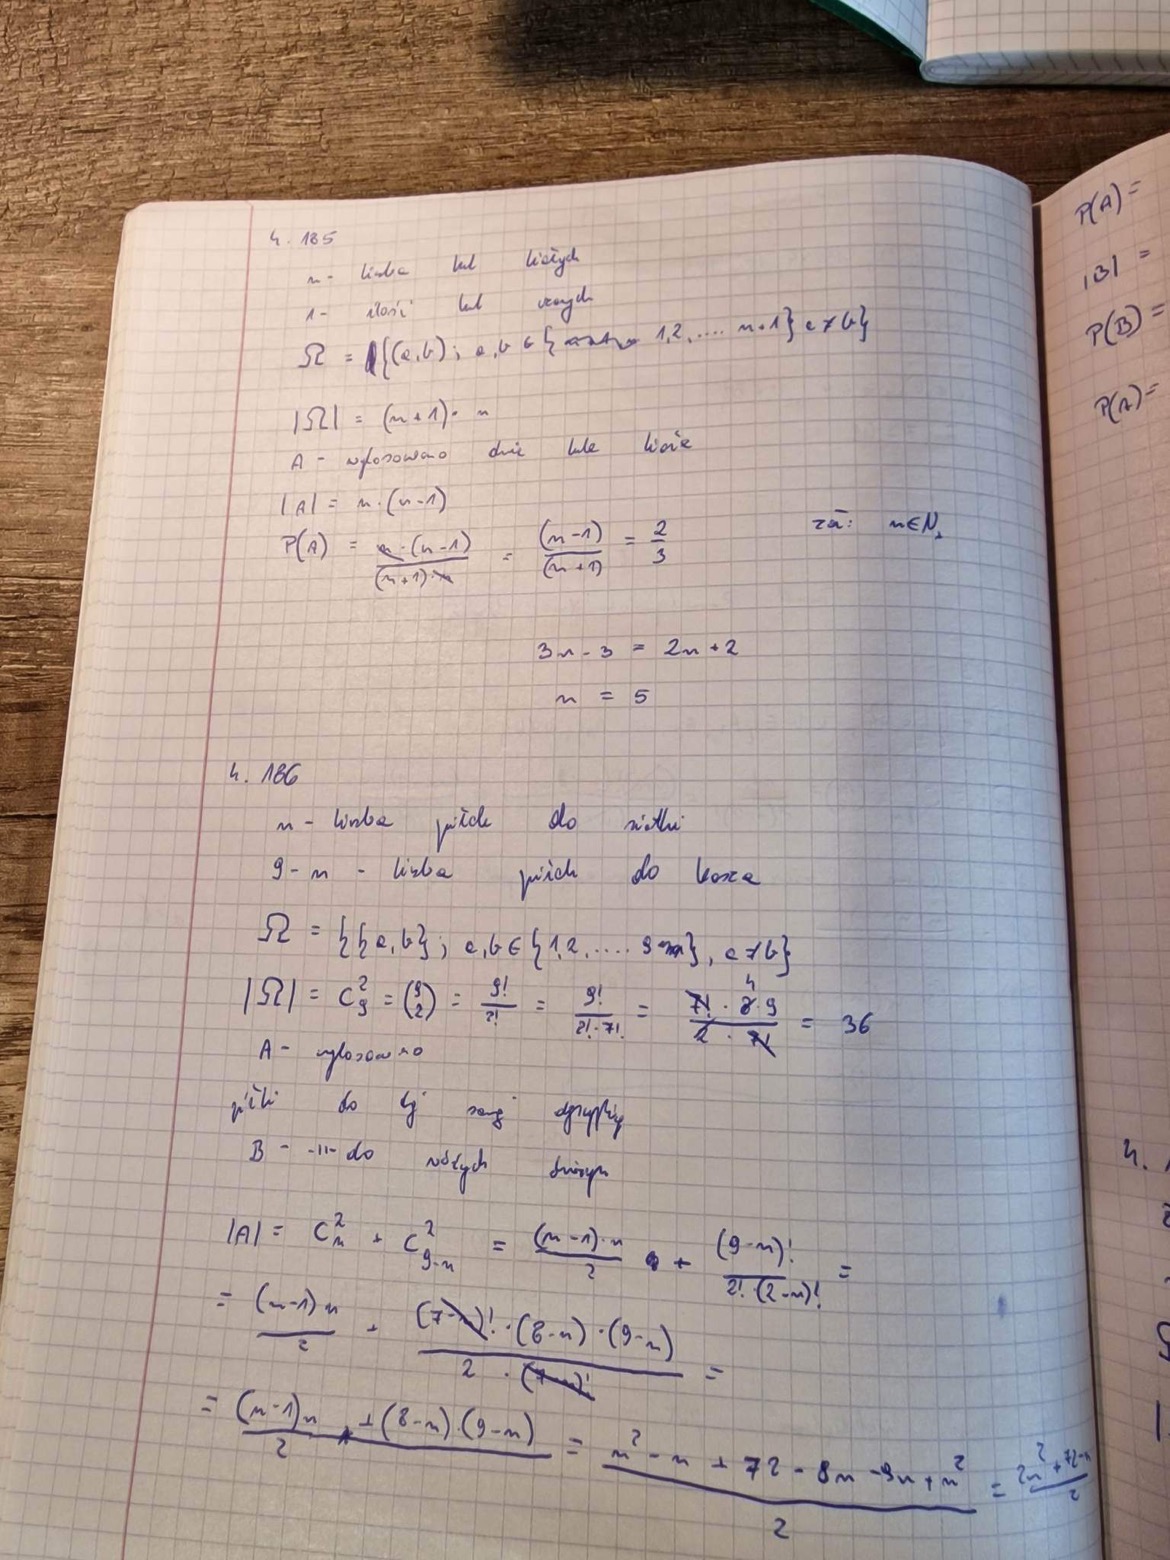 4. 185
n - liczba kul białych
1 - ilość kul czarnych
Ω = {(a,b); a,b ∈ { 1,2, .... n+1} a≠b}
|Ω| = (n+1)· n
A - wylosowano dwie kule białe
|A| = n·(n-1)
P(A) = n·(n-1)/(n+1)·n = (n-1)/(n+1) = 2/3 zał: n∈N₊
3n - 3 = 2n + 2
n = 5
4. 186
n - liczba piłek do siatki
9-n - liczba piłek do kosza
Ω = {{a,b}; a,b ∈ {1,2, .... 9}, a≠b}
|Ω| = C₉² = (9 2) = 9!/2! = 9!/2!·7! = 7!·8·9/2·7! = 36
A - wylosowano
piłki do tej samej
B - -||- do różnych
|A| = Cₙ² + C₉₋ₙ² = (n-1)·n/2 + (9-n)!/2!·(2-n)! =
= (n-1)n/2 + (7-n)!·(8-n)·(9-n)/2·(7-n)! =
= (n-1)n + (8-n)·(9-n)/2 = n² - n + 72 - 8n - 9n + n²/2 = 2n² + 72 -
P(A) =
|B| =
P(B) =
P(A) =
4.